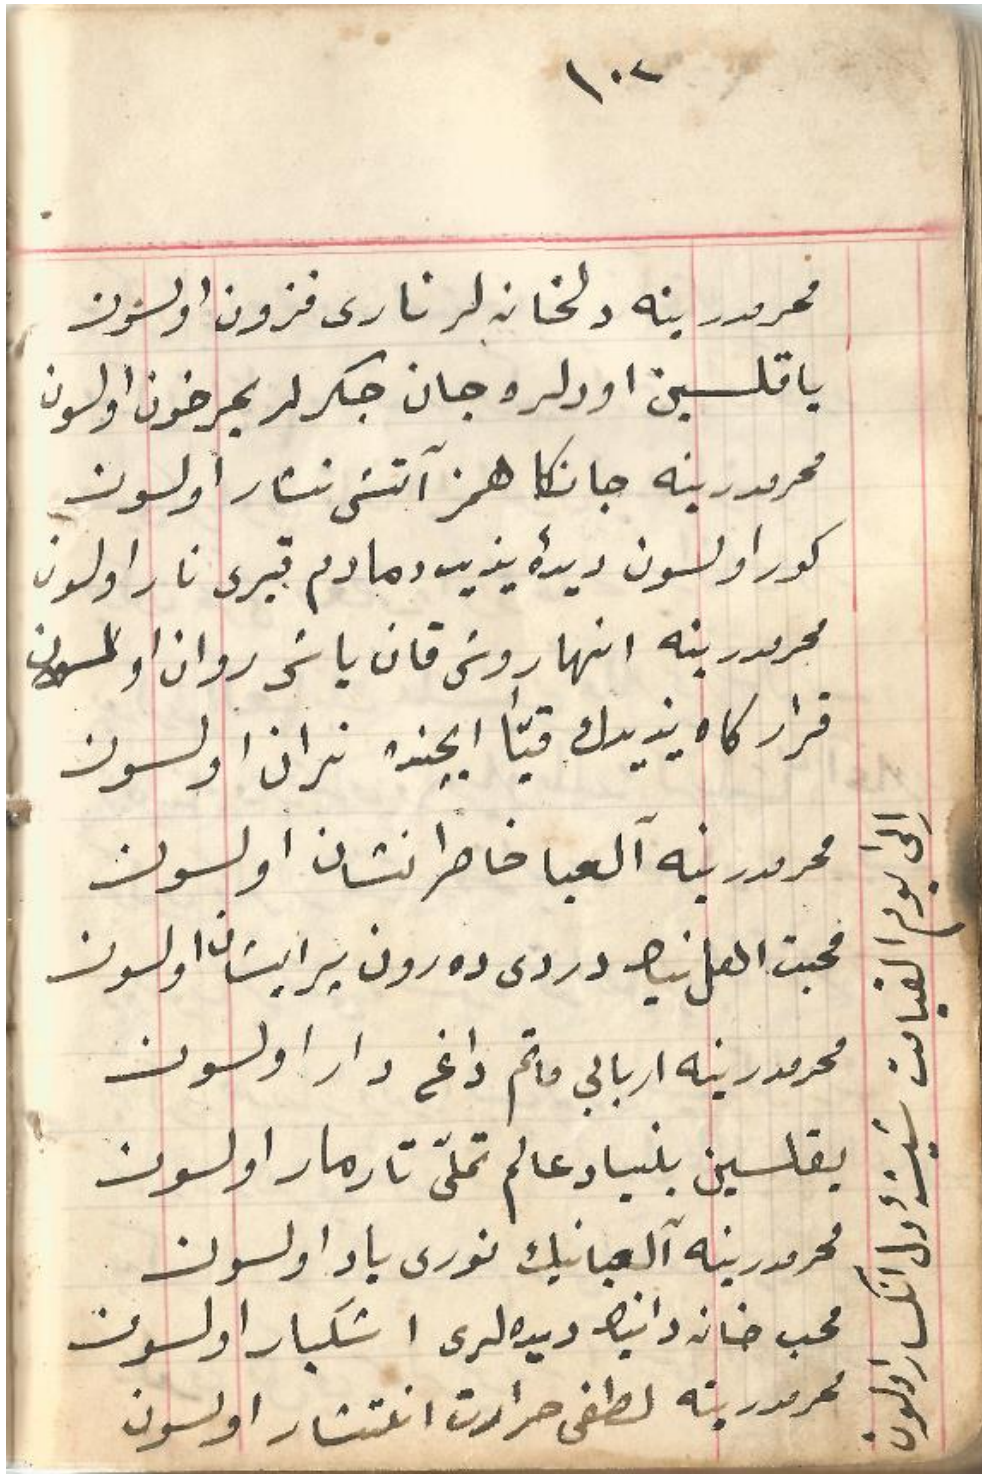 ١٠٢
محرمدر ینه دلخانه لر ناری فزون اولسون
یاقلسین اودلره جان جکرلر بحر خون اولسون
محرمدر ینه جانکاهمز آتشی نثار اولسون
کور اولسون دیدهٔ یزید دمادم قبری نار اولسون
محرمدر ینه انهار وش قان یاشی روان اولسون
قرارکاه یزیدك ایچنده نیران اولسون
محرمدر ینه آلعبا خاطرنشان اولسون
محبت اهل دردی ده رون پرایشان اولسون
محرمدر ینه اربابی ماتم داغ دار اولسون
یقلسین بنیاد عالم تارمار اولسون
محرمدر ینه آلعبانیك نوری یاد اولسون
محب خانه دیده لری اشکبار اولسون
محرمدر ینه لطفی حرارت انتشار اولسون
الی یوم القیامت دل انکسار اولسون